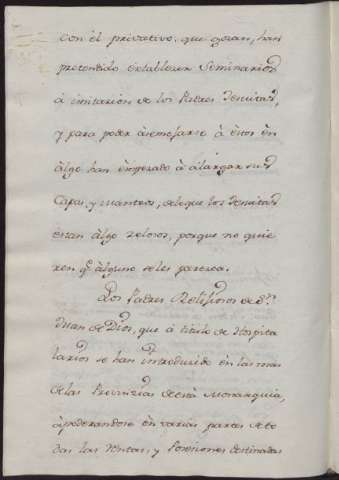 con el privativo, que gozan, han
pretendido establecer Seminarios
à imitacion de los Padres Jesuitas,
y para poder asemejarse à éstos én
àlgo han émpezado à alargar sus
Capas, y manteos, de que los Jesuitas
éstan àlgo zelosos, porque no quie
ren qe. àlguno se les paresca.
Los Padres Religiosos de Sn.
Juan de Dios, que à titulo de Hospita
larios se han introducido én las mas
de las Provinzias de ésta Monarquia,
àpoderandose én varias partes de to
das las Rentas, y Posesiones destinadas